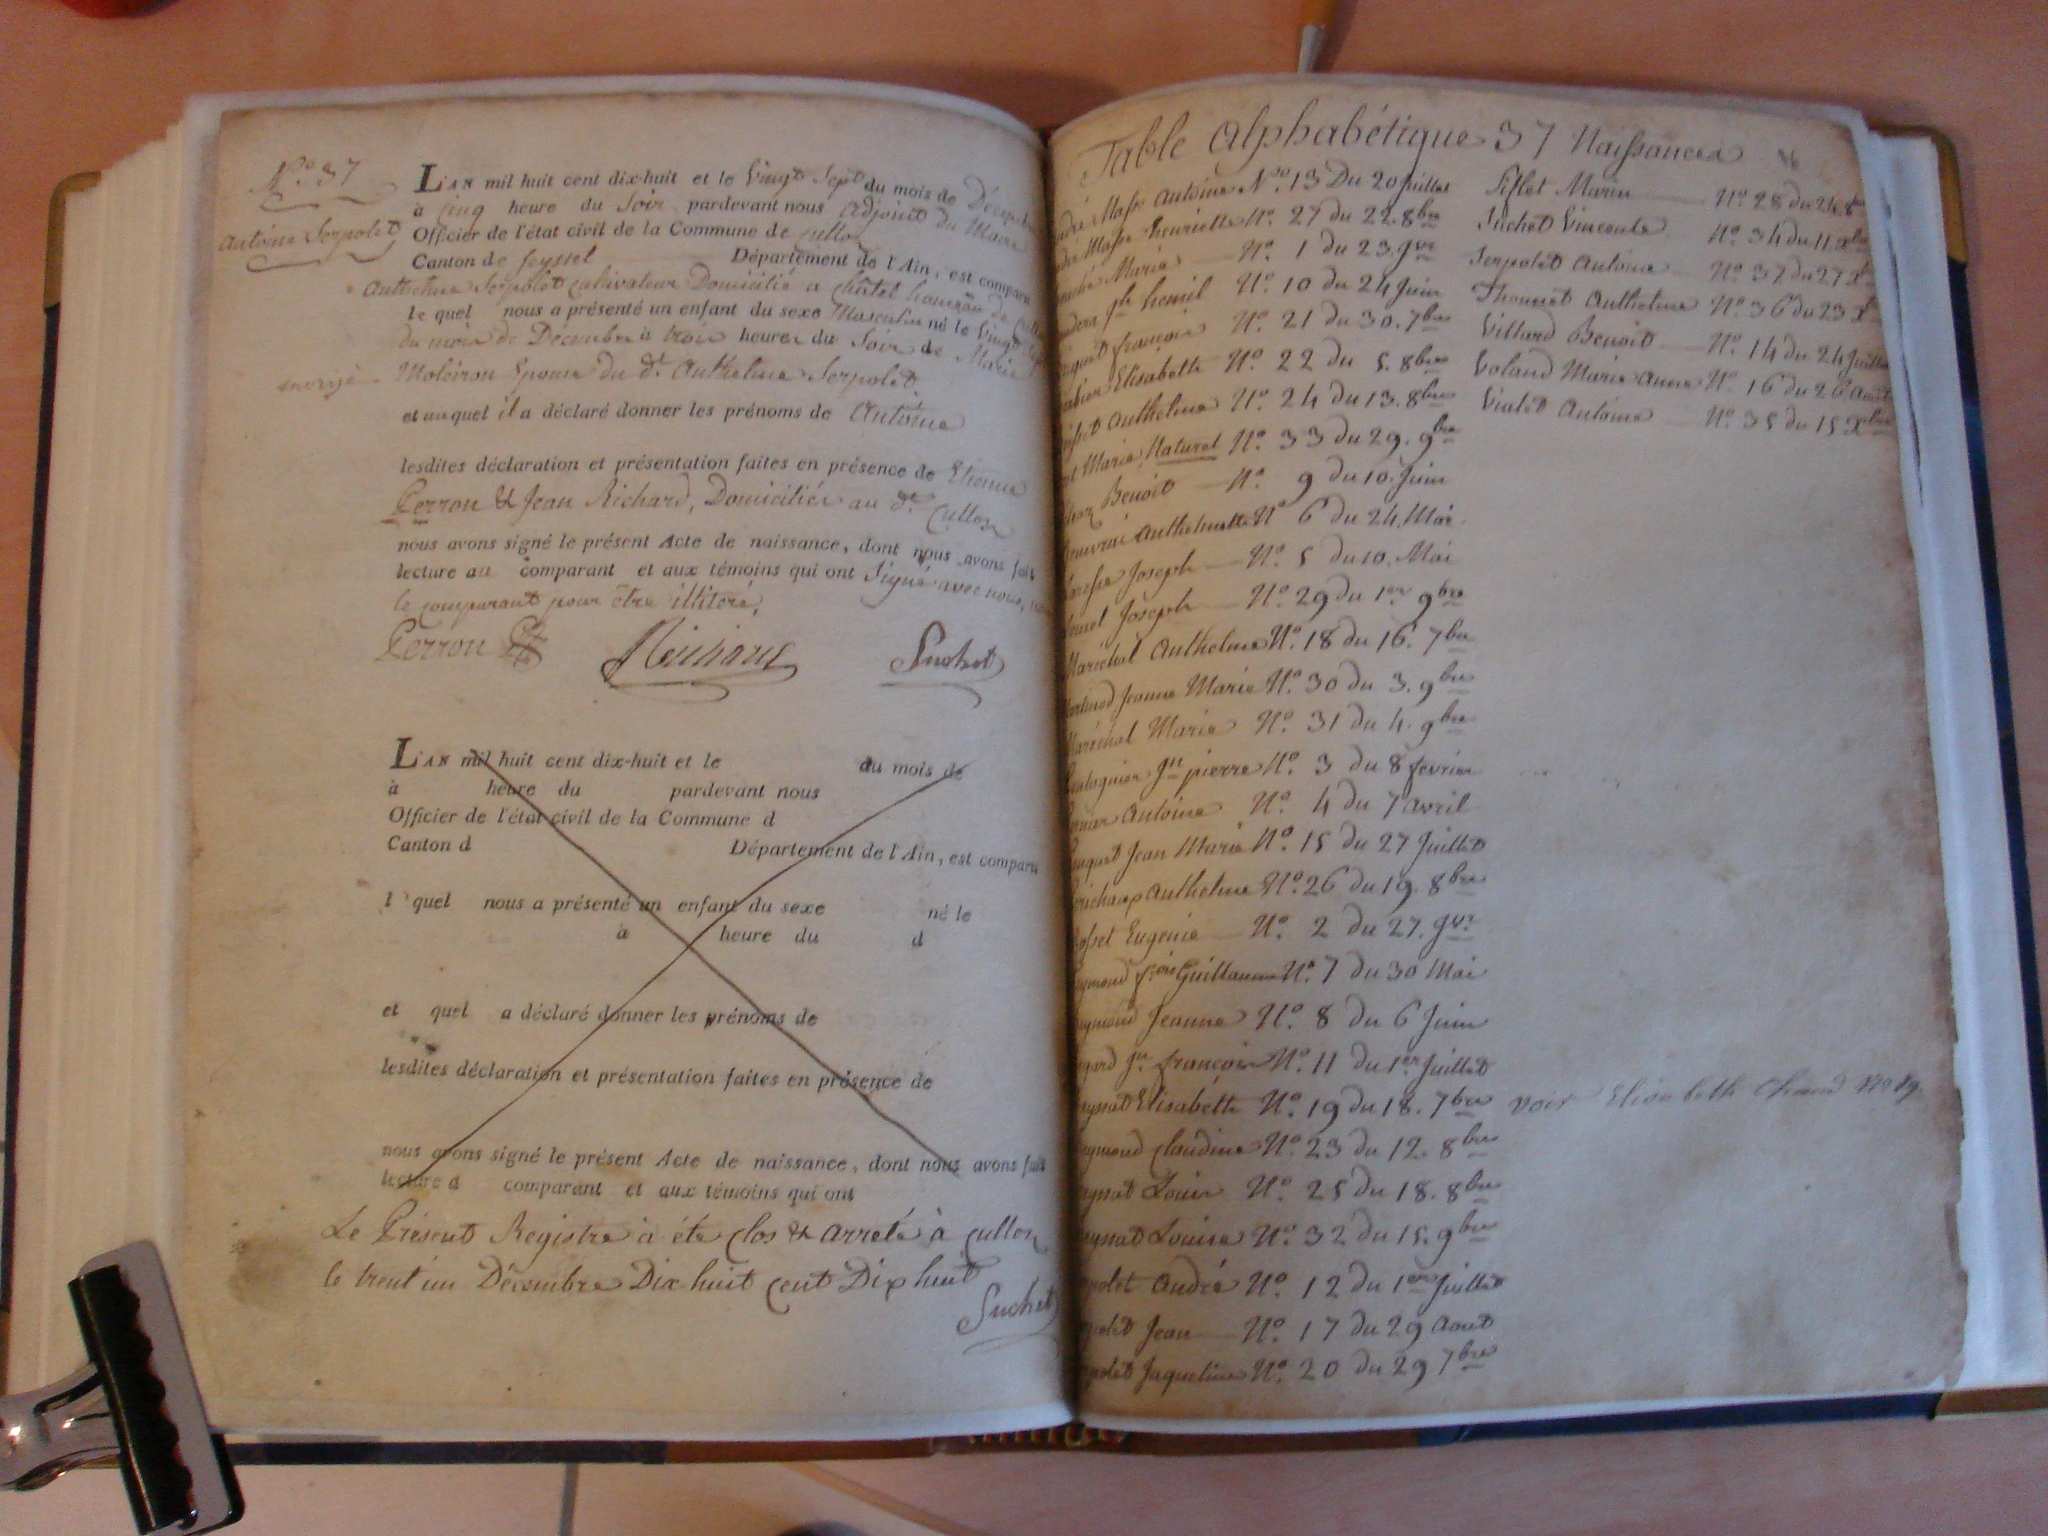 N.o 37
Antoine Serpolet
L'AN mil huit cent dix-huit et le Vingt Sept du mois de Décembre
à Cinq heure du Soir pardevant nous Adjoint du Maire
Officier de l'état civil de la Commune de Culloz
Canton de Seyssel Département de l'Ain, est comparu
Anthelme Serpolet Cultivateur Domicilié a Châtel hameau de
le quel nous a présenté un enfant du sexe Masculin né le Vingt Sept
du mois de Décembre à trois heures du Soir de Marie
Moleiron Epouse du dt. Anthelme Serpolet
et auquel il a déclaré donner les prénoms de Antoine
lesdites déclaration et présentation faites en présence de Etienne
Perron & Jean Richard, Domiciliés au dt. Culloz
nous avons signé le présent Acte de naissance, dont nous avons fait
lecture au comparant et aux témoins qui ont Signé avec nous,
le comparant pour être illitéré,
Perron Richard Suchet
L'AN mil huit cent dix-huit et le du mois de
à heure du pardevant nous
Officier de l'état civil de la Commune d
Canton d Département de l'Ain, est comparu
l quel nous a présenté un enfant du sexe né le
à heure du d
et quel a déclaré donner les prénoms de
lesdites déclaration et présentation faites en présence de
nous avons signé le présent Acte de naissance, dont nous avons fait
lecture d comparant et aux témoins qui ont
Le Présent Registre à été Clos & arrêté à Culloz
le trent'un Décembre Dix huit Cent Dix huit
Suchet
Table Alphabétique 37 Naissances
Masse Antoine N.o 13 Du 20 Juillet
Masse henriette N.o 27 du 22. 8bre
Marie N.o 1 du 23. gvr
N.o 10 du 24 Juin
françois N.o 21 du 30. 7bre
Elisabeth N.o 22 du 5. 8bre
Anthelme N.o 24 du 13. 8bre
Marie Naturel N.o 33 du 29. 9bre
Benoit N.o 9 du 10. Juin
N.o 6 du 24. Mai
Joseph N.o 5 du 10. Mai
Joseph N.o 29 du 1er 9bre
Maréchal Anthelme N.o 18 du 16. 7bre
Jeanne Marie N.o 30 du 3. 9bre
Maréchal Marie N.o 31 du 4. 9bre
Jn pierre N.o 3 du 8 fevrier
Antoine N.o 4 du 7 avril
Jean Marie N.o 15 du 27 Juillet
Anthelme N.o 26 du 19. 8bre
Eugénie N.o 2 du 27. gvr
Guillaume N.o 7 du 30 Mai
Jeanne N.o 8 du 6 Juin
Jn françois N.o 11 du 1er Juillet
Elisabeth N.o 19 du 18. 7bre voir Elisabeth Chaud No 19.
Claudine N.o 23 du 12. 8bre
Louis N.o 25 du 18. 8bre
Louise N.o 32 du 15. 9bre
André N.o 12 du 1er Juillet
Jean N.o 17 du 29 Aout
Jaqueline N.o 20 du 29 7bre
Siflet Marin N.o 28 du 24. 8bre
Suchet Vincente N.o 34 du 11. xbre
Serpolet Antoine N.o 37 du 27 x
Anthelme N.o 36 du 23 x
Villard Benoit N.o 14 du 24 Juillet
Voland Marie Anne N.o 16 du 26 Aout
Violet Antoine N.o 35 du 15 xbre